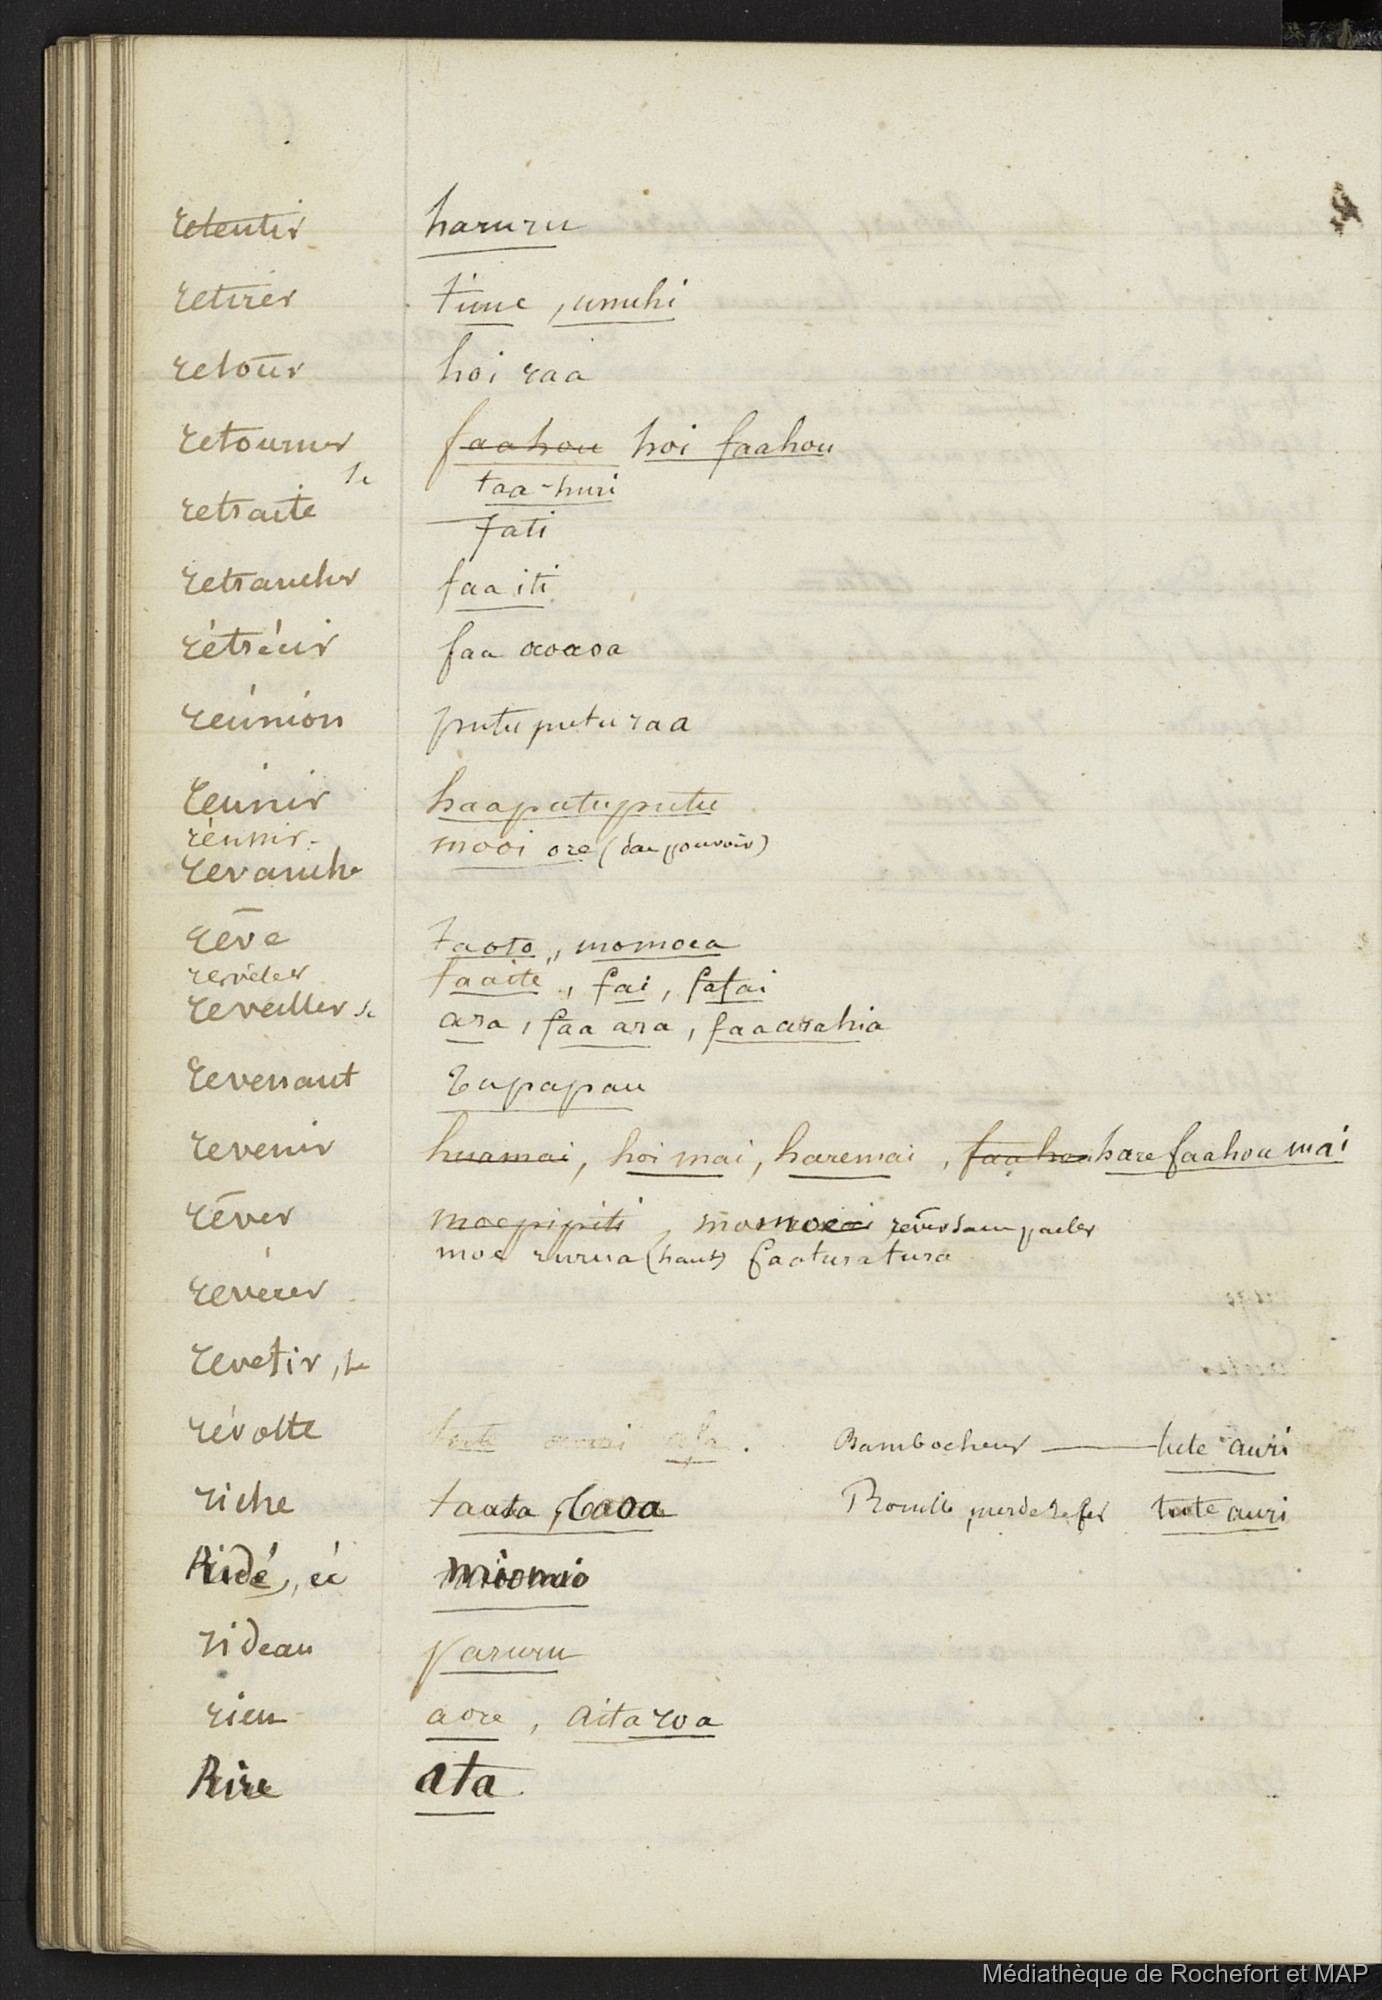 retentir haruru
retirer time, unuhi
retour hoi raa
retourner faahou hoi faahou
se taa-huri
retraite fati
retrancher faa iti
rétrécir faa aoaoa
reúnion putuputuraa
reunir haaputuputu
réunir mooi ore (dans pouvoir)
revanche
rêve taoto, momoea
reveler faaite, fai, fafai
reveiller se ara, faa ara, faaarahia
revenant Tupapau
revenir huamai, hoi mai, haremai, faahou hare faahou mai
rêver moepipiti, momoeai rêver sans parler
moe rurua (haut) faaturatura
reveur
revetir, se
révolte tute auri ata. Bambocheur — tute auri
riche taata, Taoa Rouille, merde de fer tute auri
Ridé, éé miomio
rideau paruru
rien aore, aita roa
Rire ata
Médiathèque de Rochefort et MAP